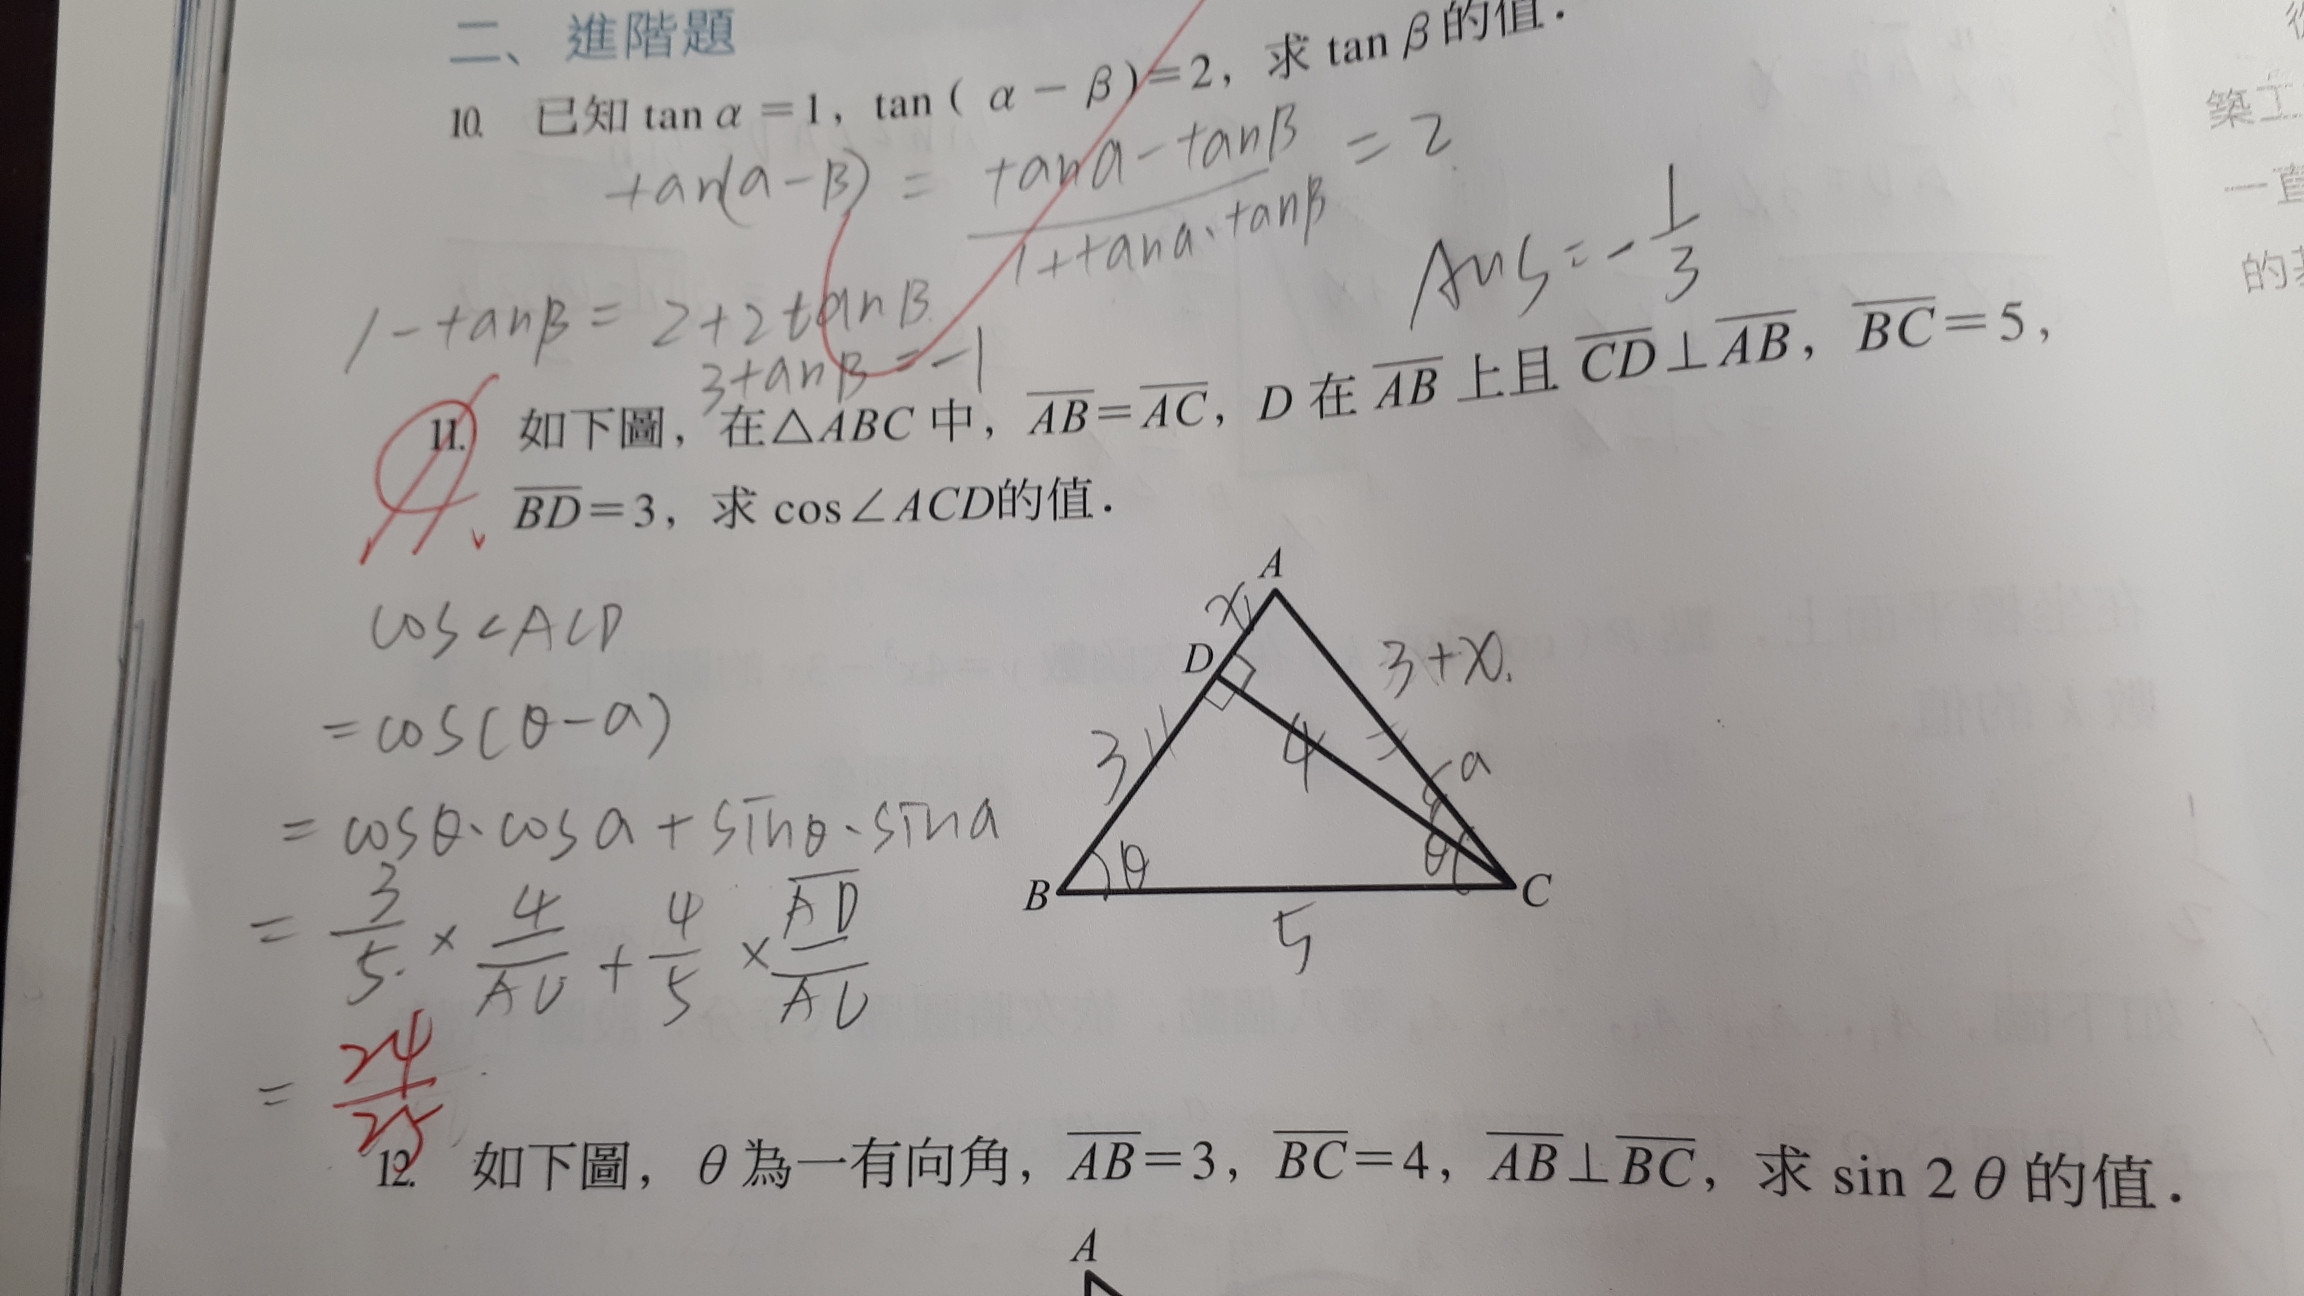 二、進階題
10. 已知 tan α = 1, tan ( α − β ) = 2, 求 tan β 的值.
tan(a − β) = tana − tanβ / 1 + tana · tanβ = 2
Ans = − 1/3
1 − tanβ = 2 + 2tanβ
3tanβ = −1
11. 如下圖, 在△ABC 中, AB = AC, D 在 AB 上且 CD ⊥ AB, BC = 5,
BD = 3, 求 cos∠ACD的值.
cos∠ACD
= cos(θ − a)
= cosθ · cos a + sinθ · sina
= 3/5 × 4/AC + 4/5 × AD/AC
= 24/25
A
x
D
3+x
3
4
a
θ
θ
B
C
5
12. 如下圖, θ 為一有向角, AB = 3, BC = 4, AB ⊥ BC, 求 sin 2 θ 的值.
A
築工
一直
的